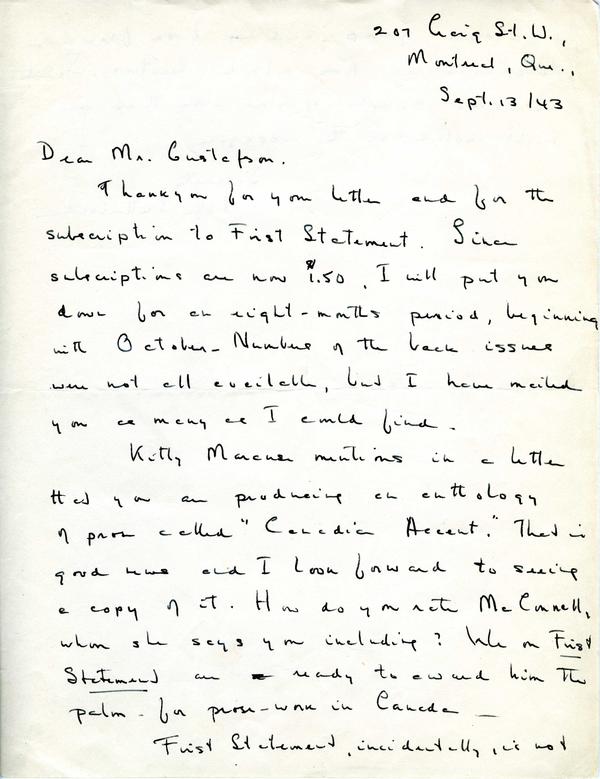 207 Craig St. W.,
Montreal, Que.,
Sept. 13/43
Dear Mr. Gustafson.
Thankyou for your letter and for the
subscription to First Statement. Since
subscriptions are now $1.50, I will put you
down for an eight-months period, beginning
with October - Numbers of the back issues
were not all available, but I have mailed
you as many as I could find.
Kitty Marcuse mentions in a letter
that you are producing an anthology
of prose called "Canadian Accent." That is
good news and I look forward to seeing
a copy of it. How do you rate McConnell,
whom she says you including? We on First
Statement are ready to award him the
palm - for prose-work in Canada -
First Statement, incidentally, is not